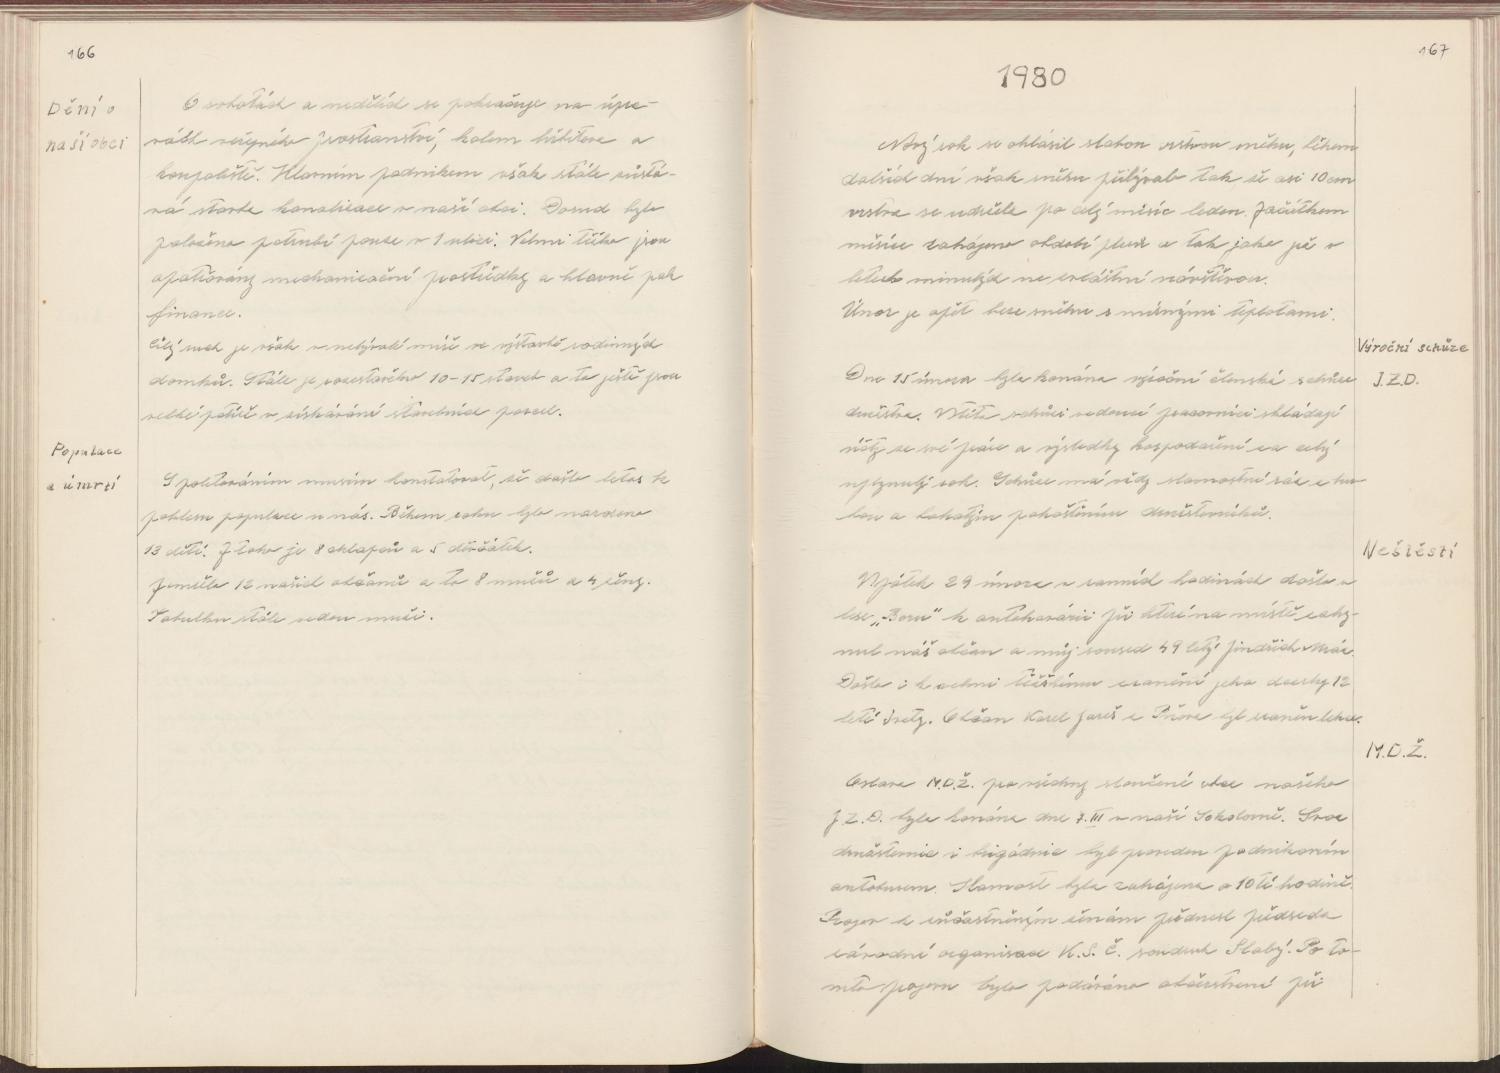 166
Dění v
naší obci
O sobotách a nedělích se pokračuje na úpra-
vách veřejného prostranství, kolem hřbitova a
koupaliště. Hlavním podnikem však stále zůstá-
vá stavba kanalizace v naší obci. Dosud bylo
položeno potrubí pouze v 1 ulici. Velmi těžko jsou
opatřovány mechanizační prostředky a hlavně pak
finance.
Čilý ruch je však v nebývalé míře ve výstavbě rodinných
domků. Stále je rozestavěno 10-15 staveb a to ještě jsou
velké potíže v získávání stavebních parcel.
Populace
a úmrtí
S politováním musím konstatovat, že došlo letos k
poklesu populace u nás. Během roku bylo narozeno
13 dětí. Z toho je 8 chlapců a 5 děvčátek.
Zemřelo 12 našich občanů a to 8 mužů a 4 ženy.
Tabulku stále vedou muži.
167
1980
Nový rok se ohlásil slabou vrstvou sněhu, během
dalších dní však sněhu přibývalo tak, že asi 10 cm
vrstva se udržela po celý měsíc leden. Začátkem
měsíce zahájeno období plesů a tak jako již v
letech minulých ne zvláštní návštěvou.
Únor je opět beze sněhu s mírnými teplotami.
Výroční schůze
J.Z.D.
Dne 15 února byla konána výroční členská schůze
družstva. V této schůzi vedoucí pracovníci skládají
účty ze své práce a výsledky hospodaření za celý
uplynulý rok. Schůze má vždy slavnostní ráz s hud-
bou a bohatým pohoštěním družstevníků.
Neštěstí
V pátek 29 února v ranních hodinách došlo v
lese „Boru" k autohavárii při které na místě zahy-
nul náš občan a můj soused 49 letý Jindřich
Došlo i k velmi těžkému zranění jeho dcerky 12
leté Ivety. Občan Karel Jareš z byl zraněn lehce.
M.D.Ž.
Oslava M.D.Ž. pro všechny sloučené obce našeho
J.Z.D. byla konána dne 7.III v naší Sokolovně. Svoz
družstevnic i brigádnic byl proveden podnikovým
autobusem. Slavnost byla zahájena o 10té hodině.
Projev k zúčastněným ženám přednesl předseda
závodní organisace K.S.Č. soudruh Slabý. Po to-
mto projevu bylo podáváno občerstvení při